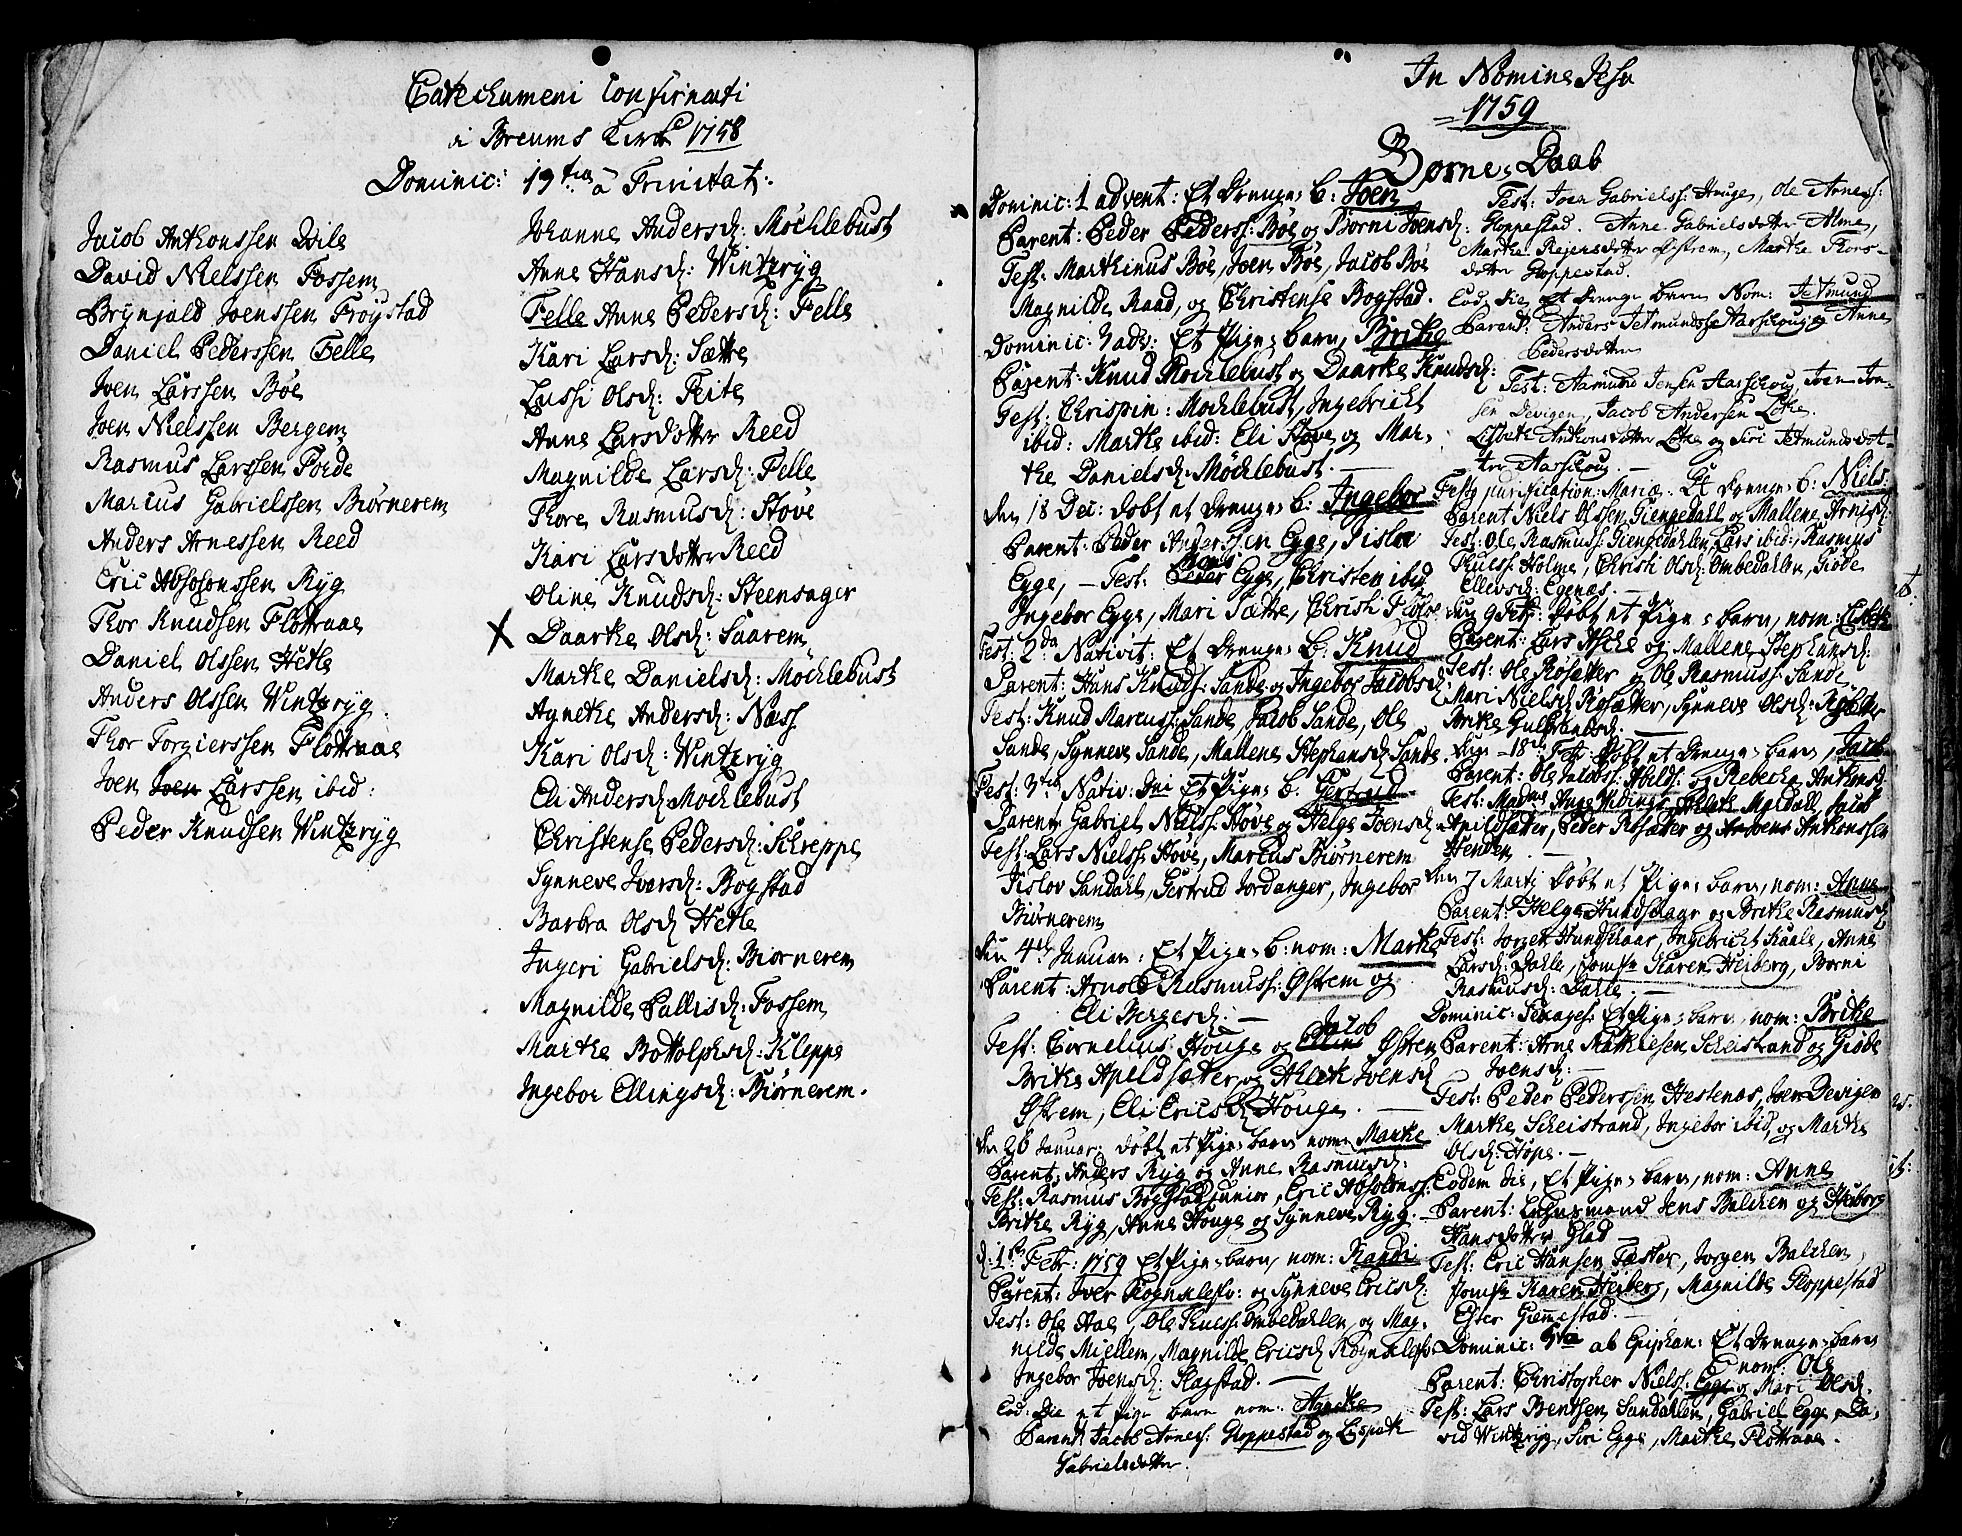 Catechumeni Confirmati
i Breums Kirke 1758
Dominic: 19 tia à Trinitat:
Jacob Anthonssen
David Nielssen Fossem
Brynjald Joenssen Frøystad
Daniel Pederssen Felle
Joen Larssen Bøe
Joen Nielssen Bergem
Rasmus Larssen Førde
Marcus Gabrielssen Biørnerem
Anders Arnessen Reed
Eric Absolonssen Ryg
Thor Knudsen Flottraae
Daniel Olssen Hetle
Anders Olssen Winteryg
Thor Torgierssen Flottraae
Joen Joen Larssen ibid:
Peder Knudsen Winteryg
Johanne Andersd: Möchlebust
Anne Hansd: Winteryg
Felle Anne Pedersd: Felle
Kari Larsd: Sættre
Lussi Olsd: Feite
Anne Larsdotter Reed
Magnilde Larsd: Felle
Thore Rasmusd: Høve
Kari Larsdotter Reed
Oline Knudsd: Steensager
X Daarthe Olsd: Saarem
Marthe Danielsd: Möchlebust
Agnethe Andersd: Næss
Kari Olsd: Winteryg
Eli Andersd: Mochlebust
Christense Pedersd: Schreppe
Synneve Iversd: Bogstad
Barbra Olsd: Hetle
Ingeri Gabrielsd: Biørnerem
Magnilde Pallisd: Fossem
Marthe Bottolphsd: Kleppe
Ingebor Ellingsd: Biørnerem.
In Nomine Jesu
1759
Børne-Daab
Dominic: 1 advent: Et Drenge-B: Joen
Parent: Peder Peders: Bøe og Børni Joensd:
Test: Marthinus Bøe, Joen Bøe, Jacob Bøe
Magnilde Raad, og Christense Bogstad.
Dominic: 3 adv: Et Pige-barn, Brithe
Parent: Knud Mochlebust og Daarthe Knudsd:
Test: Chrispin: Mochlebust, Ingebricht
ibid: Marthe ibid: Eli Hove og Mar-
the Danielsd: Möchlebust.
den 18 Dec: døbt et Drenge-B: Ingebor
Parent: Peder Anderssen Egge, Sislov
Mons
Egge, – Test: Peder Egge, Christen ibid
Ingebor Egge, Mari Sættre, Christi
Fest: 2da Nativit: Et Drenge-B: Knud
Parent: Hans Knuds: Sande og Ingebor Jacobsd:
Test: Knud Marcuss: Sande, Jacob Sande, Ole
Sande, Synneve Sande, Mallene Stephansd: Sande.
Fest: 3tia Nativ: Dni Et Pige-B: Gertrud
Parent: Gabriel Nielss: Høve og Helge Joensd:
Test: Lars Nielss: Høve, Marcus Biørnerem
Sislov Sandahl, Gertrud Jordanger, Ingebor
Biørnerem
den 4de Januar: Et Pige-B: nom: Marthe
Parent: Arnold Rasmuss: Østrem og
Eli Børgesd: –
Jacob
Test: Cornelius Houge og Elling Østrem
Brithe Apeldsæter, og Aleth Joensd:
Østrem, Eli Ericsd: Houge.
den 26 Januar: døbt et Pige-barn nom: Marthe
Parent: Anders Ryg og Anne Rasmusd:
Test: Rasmus Bogstad junior, Eric Absolonss:
Brithe Ryg, Anne Houge og Synneve Ryg.
d: 1te Febr: 1759 Et Pige-barn, nom: Randi
Parent: Iver Rognelefss: og Synneve Ericsd:
Test: Ole Hae, Ole Thuess: Ombedahlen, og Mag-
nilde Miellem, Magnilde Ericsd: Rognelefs:
Ingebor Joensd: Slagstad.
Eod: Die et pige barn nom: Agnethe
Parent: Jacob Arness: Gloppestad og Lispeth
Gabrielsdotter.
Test: Joen Gabrielss: Houge, Ole Arness:
Gloppestad. Anne Gabrielsdotter Alme,
Marthe Reiersdotter Østrem, Marthe Thors-
dotter Gloppestad.
Eod: die et Drenge barn Nom: Tetmund
Parent: Anders Tetmundss: Aarschoug og Anne
Pedersdotter
Test: Aamund Jensen Aarschoug, Joen Jon-
sen Devigen, Jacob Andersen Lothe.
Lisbeth Anthonsdotter Lothe og Siri Tetmundsdot-
ter Aarschoug.
Festo purification: Mariæ. Et Drenge-b: Niels
Parent Niels Olssen Giengedahl og Mallene Arnisd:
Test: Ole Rasmuss: Giengedahlen, Lars ibid:, Rasmus
Thuess: Holme, Christi Olsd: Ombedahlen, Giøde
Ellevsd: Egenæs. –
den 9 Febr: døbt et Pige-barn, nom: Lisbeth
Parent: Lars Aske og Mallene Stephansd:
Test: Ole Røsæter og Ole Rasmuss: Sande
Mari Nielsd: Rosætter, Synneve Olsd: Røsæter
Brithe Gulbrandsd: –
Den 18de Febr: døbt et Drenge-barn, Jacob
Parent: Ole Jacobs: Abild: og Rebecha Anthonsd:
Test: Madme Inge Widings Aleth Mardall, Jacob
Apildsæter, Peder Rosæter og Anthonssen
Henden
den 7 Martj døbt et Pige-barn, nom: Anne
Parent: Helge Hundschaar og Brithe Rasmusd:
Test: Jorgen Hundschaar, Ingebricht Kaale, Anne
Larsd: Dahle, Jomfr Karen Heiberg, Børni
Rasmusd: Dahle. –
Dominic: Sexages: Et Pige-barn, nom: Brithe
Parent: Arne Mathiesen Scheistrand og Giøde
Joensd: –
Test: Peder Pederssen Hestenæs, Joen Devigen
Marthe Scheistrand, Ingebor ibid, og Marthe
Olsd: Hope. –
Eodem die, Et Pige-barn, nom: Anne
Parent: Lehnsmand Jens Balchen og Heiborg
Hansdotter Glad –
Test: Eric Hansen Fæster, Jorgen Balchen,
Jomfr Karen Heiberg, Magnilde Gloppestad
Ester Giemmestad. –
Dominic: 5ta ab Epiphan: Et Drenge-barn
nom: Ole
Parent: Christopher Nielss: Egge og Mari Olsd:
Test: Lars Bentsen Sandahlen, Gabriel Egge, Da-
vid Winteryg, Siri Egge, Marthe Flottraae.